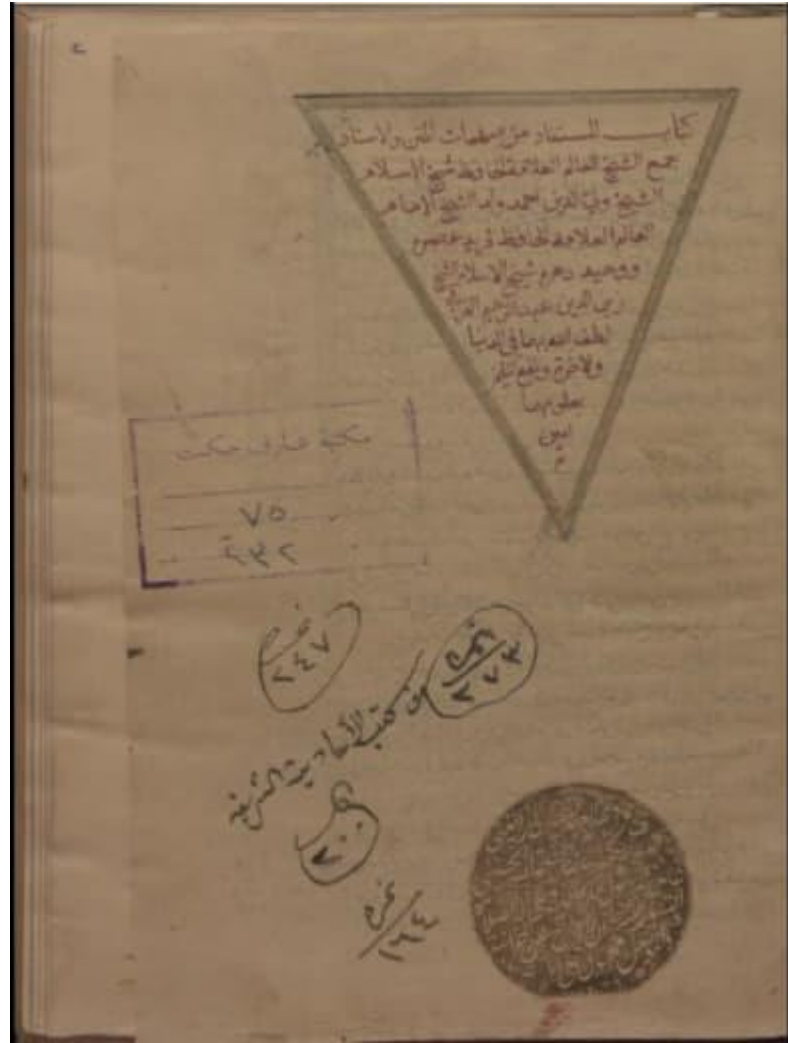 ٢
كتاب المستفاد من مبهمات المتن والاسناد
جمع الشيخ العالم العلامة الحافظ شيخ الاسلام
الشيخ ولي الدين احمد ولد الشيخ الإمام
العالم العلامة الحافظ فريد عصره
ووحيد دهره شيخ الاسلام الشيخ
زين الدين عبد الرحيم العراقي
لطف الله بهما في الدنيا
والاخرة ونفع
بعلومهما
امين
م
مكتبة عارف حكمت
٧٥
٢٣٢
نمرة
٢٤٧
نمرة
٢٧٣
من كتب الأحاديث الشريفة
٢٠٠
نمرة
١٦٤